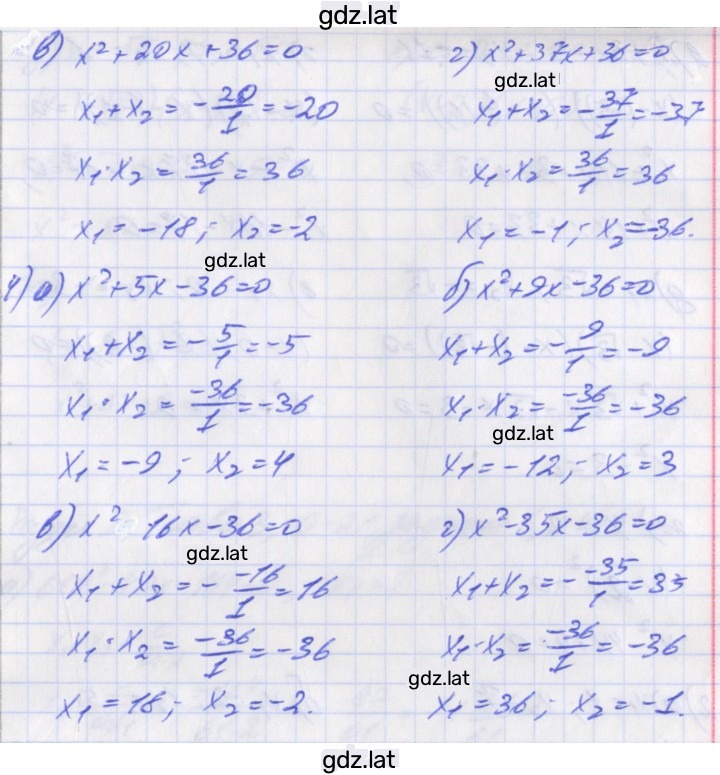 gdz.lat
в) x² + 20x + 36 = 0
x₁ + x₂ = -20/1 = -20
x₁ · x₂ = 36/1 = 36
x₁ = -18; x₂ = -2
г) x² + 37x + 36 = 0
gdz.lat
x₁ + x₂ = -37/1 = -37
x₁ · x₂ = 36/1 = 36
x₁ = -1; x₂ = -36.
gdz.lat
4) а) x² + 5x - 36 = 0
x₁ + x₂ = -5/1 = -5
x₁ · x₂ = -36/1 = -36
x₁ = -9; x₂ = 4
б) x² + 9x - 36 = 0
x₁ + x₂ = -9/1 = -9
x₁ · x₂ = -36/1 = -36
gdz.lat
x₁ = -12; x₂ = 3
в) x² 16x - 36 = 0
gdz.lat
x₁ + x₂ = - -16/1 = 16
x₁ · x₂ = -36/1 = -36
x₁ = 18; x₂ = -2.
г) x² - 35x - 36 = 0
x₁ + x₂ = - -35/1 = 35
x₁ · x₂ = -36/1 = -36
gdz.lat
x₁ = 36; x₂ = -1.
gdz.lat